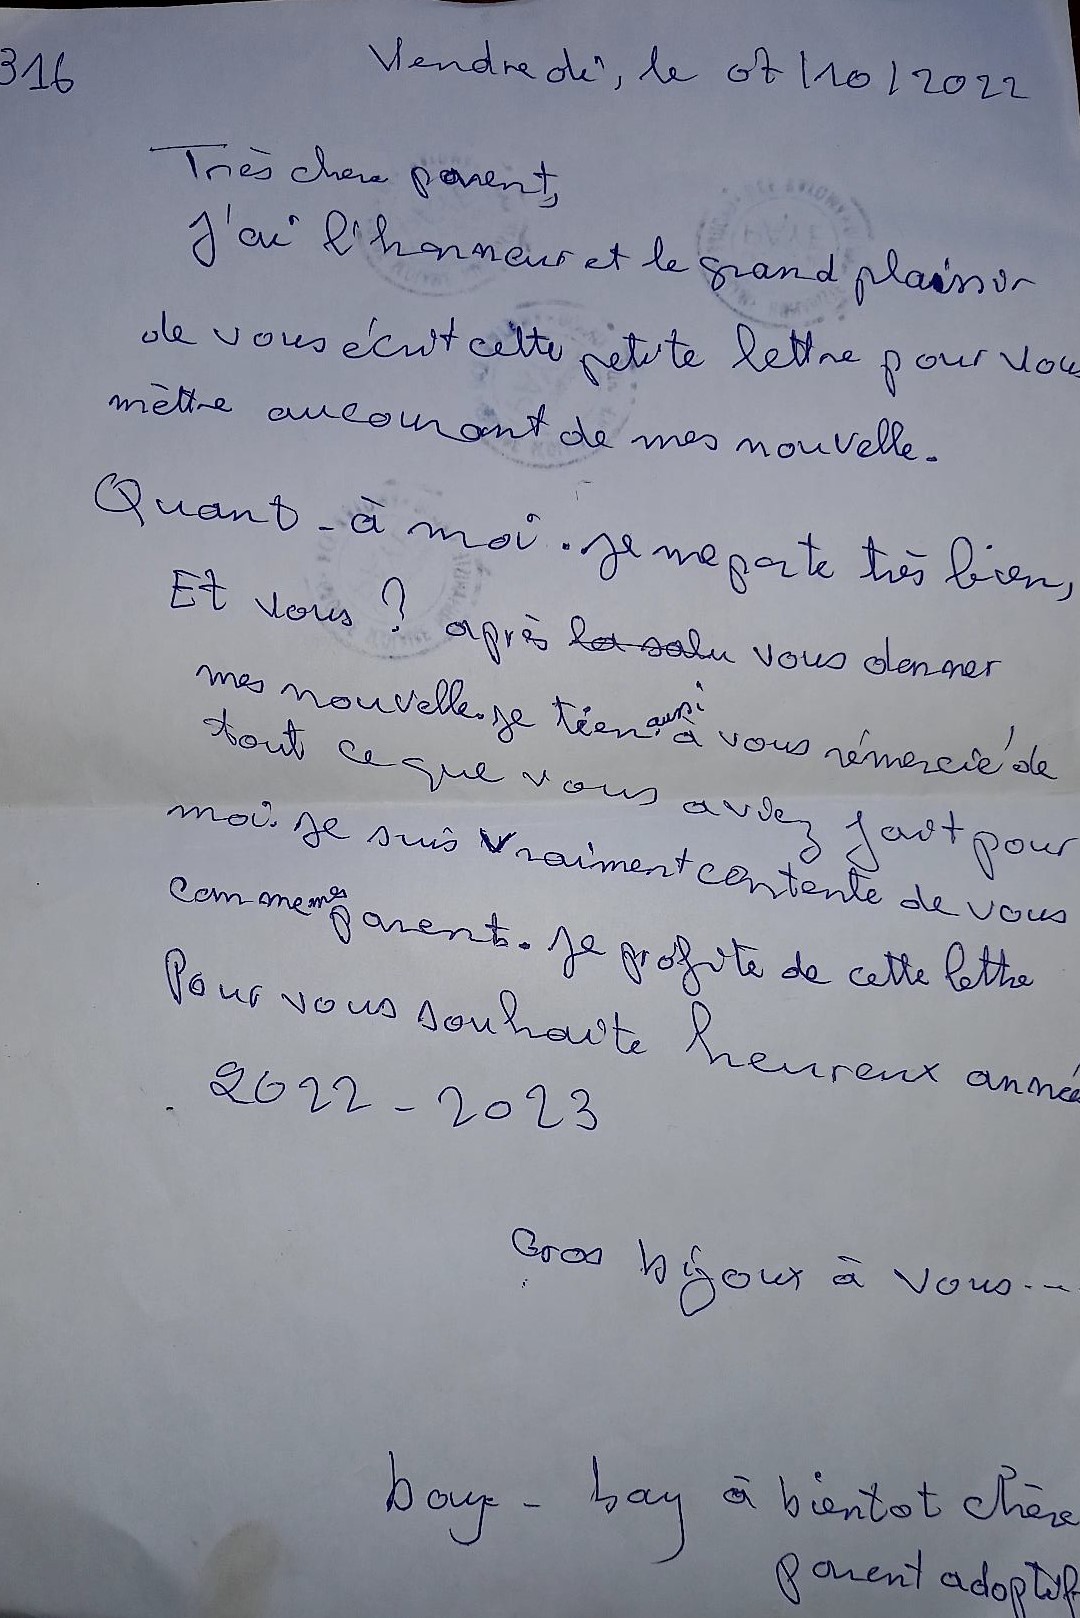 316
Vendredi, le 07/10/2022
Très chere parent,
J'ai l'honneur et le grand plaisir
de vous écrit cette petite lettre pour vous
mèttre au courant de mes nouvelle.
Quant-à moi. Je me porte très bien,
Et vous ? après la salu vous donner
mes nouvelle. Je tien aussi à vous rémercié de
tout ce que vous avez fait pour
moi. Je suis vraiment contente de vous
comme mes parents. Je profite de cette lettre
Pour vous souhaite heureux année
2022-2023
Gros bijoux à vous...
bay - bay à bientot chère
parent adoptif